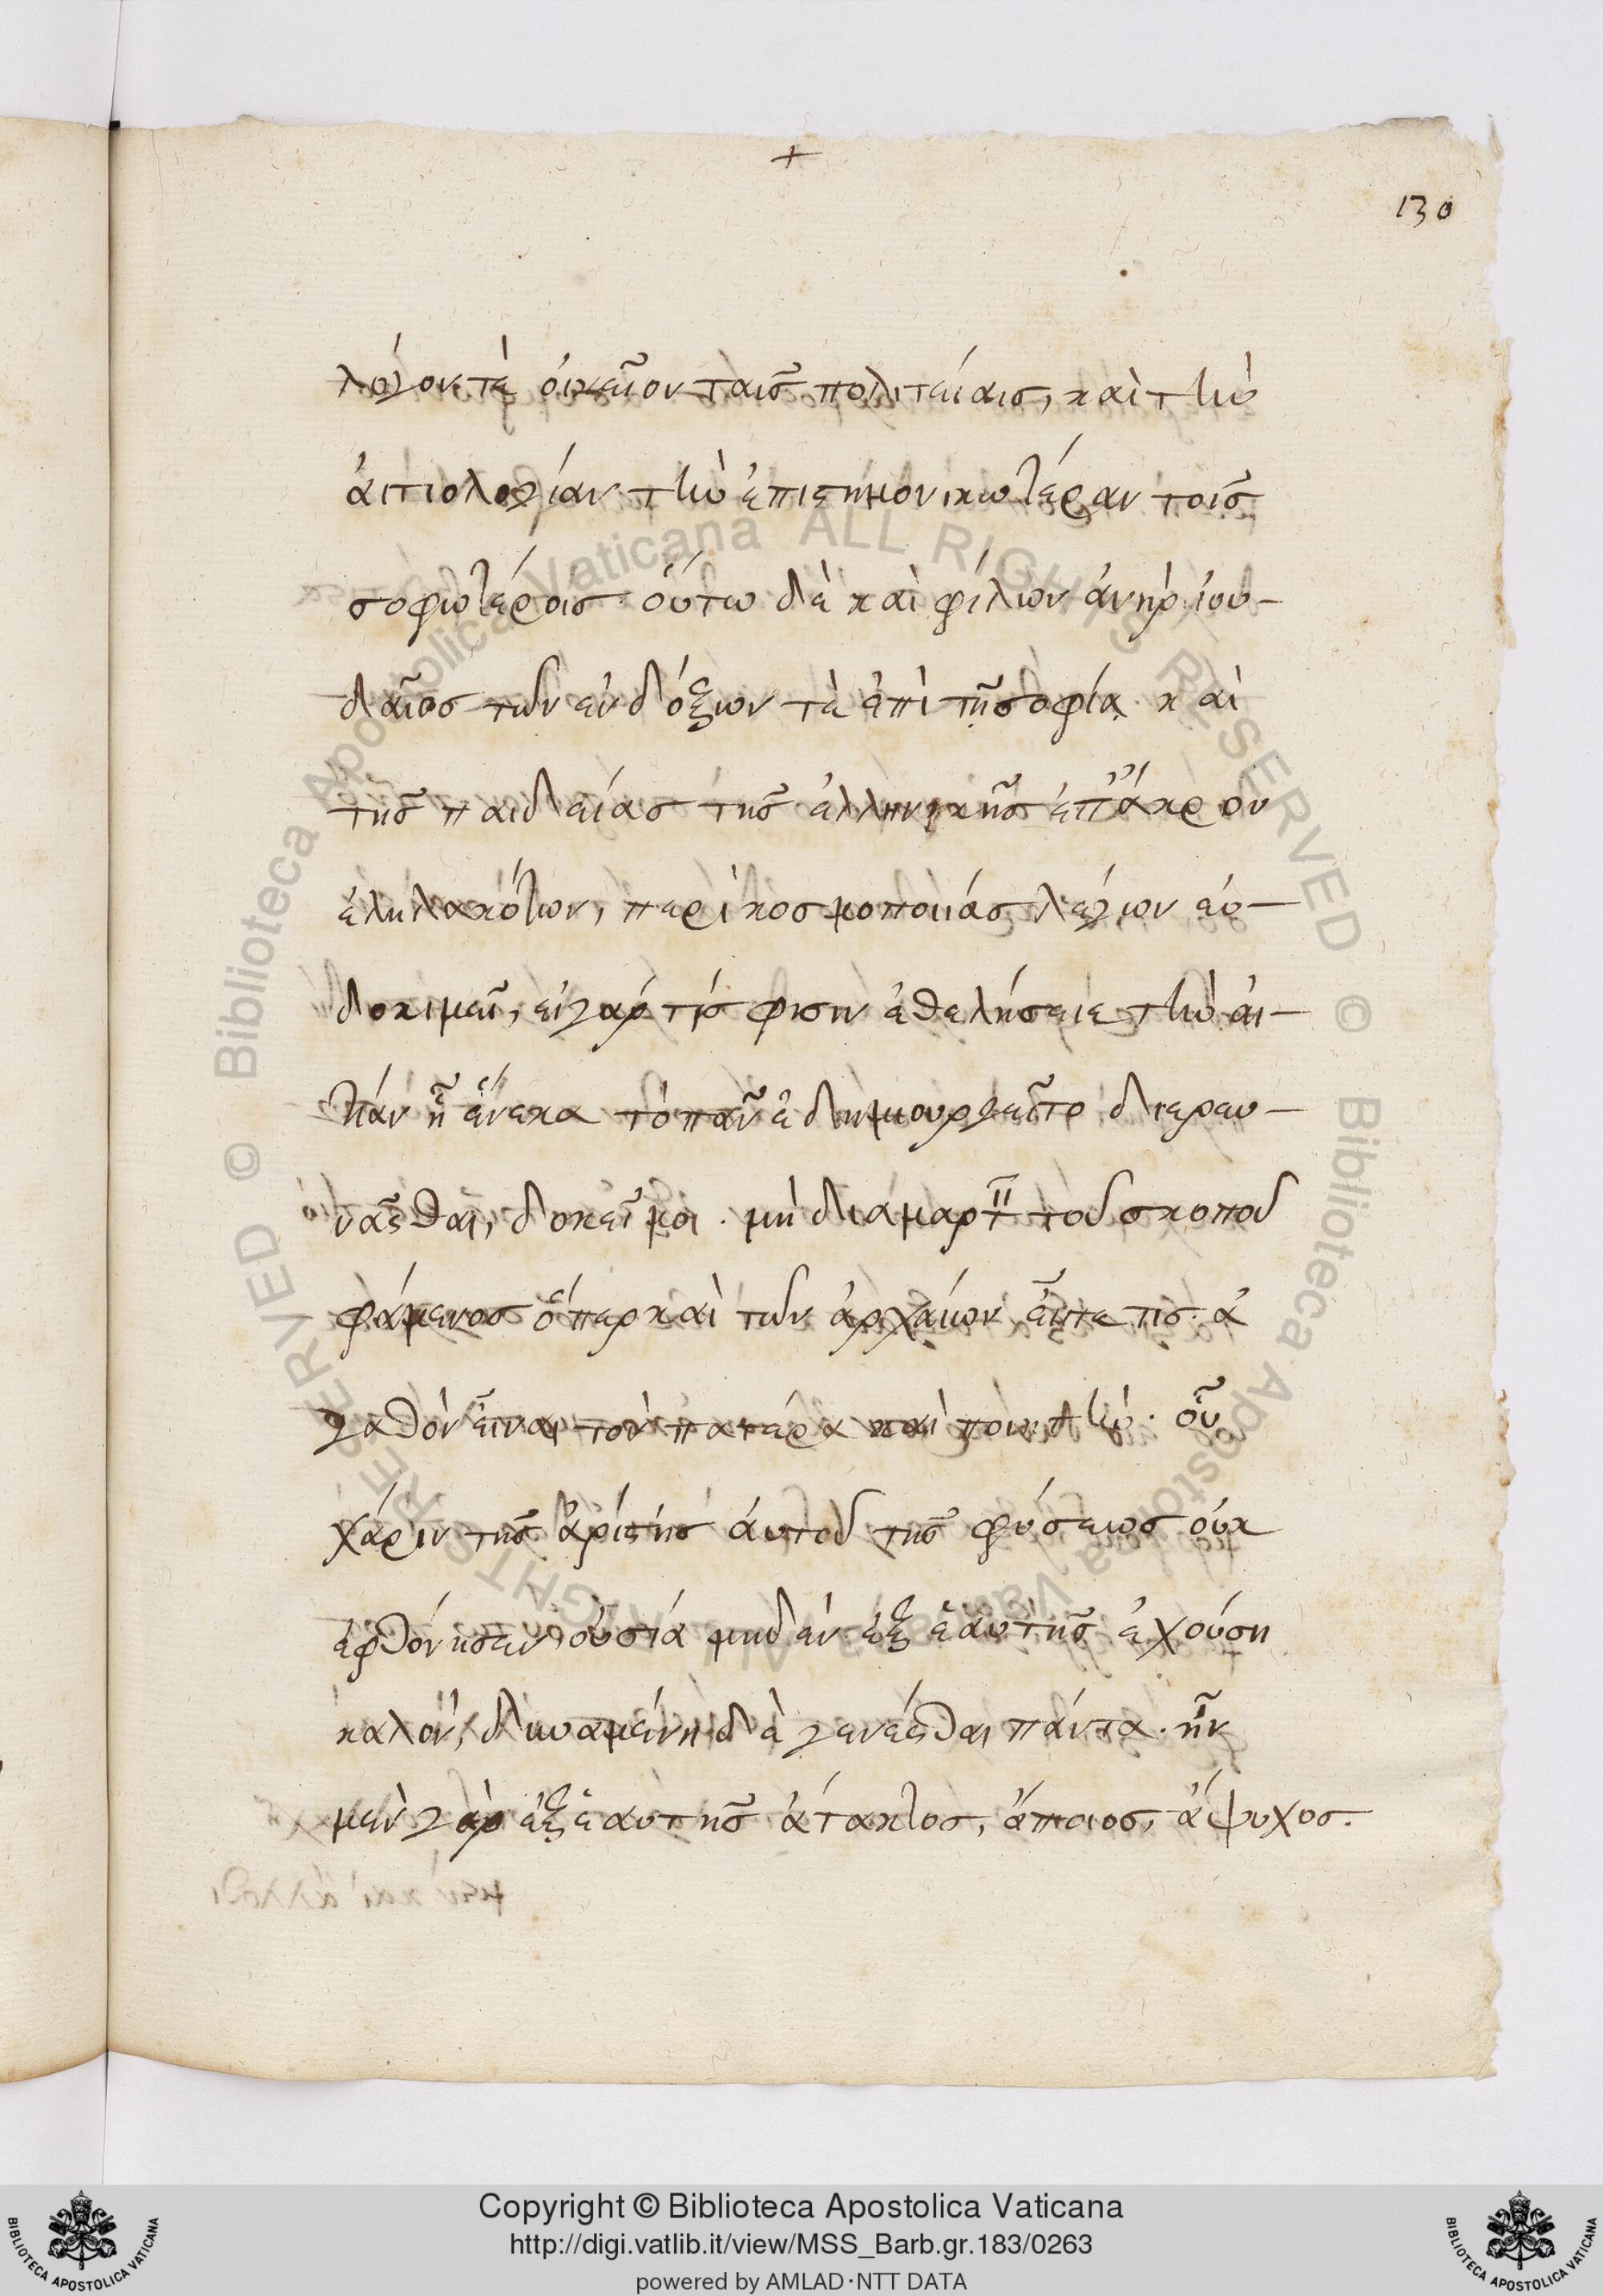 +
130
λόγον τὲ οἰκεῖον ταῖς πολιτείαις, καὶ τὴν
ἀιτιολογίαν τὴν ἐπιστημονικωτέραν τοῖς
σοφωτέροις· οὕτω δὲ καὶ φίλων ἀνὴρ ἰου-
δαῖος τῶν ἐνδόξων τὲ ἐπὶ τῆ σοφία καὶ
τῆς παιδείας τῆς ἑλληνικῆς ἐπ' ἄκρον
ἐληλακότων, περὶ κοσμοποιίας λέγων εὐ-
δοκιμεῖ, εἰ γάρ τίς φισὴν ἐθελήσειε τὴν ἀι-
τίαν ἧ ἕνεκα τὸ πᾶν ἐδημιουργεῖτο διερευ-
νᾶσθαι, δοκεῖ μοι. μὴ διαμαρτ τοῦ σκοποῦ
φάμενος ὅπερ καὶ τῶν ἀρχαίων εἶπε τις· ἀ
γαθὸν εἶναι τὸν πατέρα καὶ ποιητὴν· οὗ
χάριν τῆς ἀρίστης ἀυτοῦ τῆς φύσεως οὐκ
ἐφθόνησεν οὐσία μηδὲν ἐξ ἑαυτῆς ἐχούση
καλὸν, δυναμένη δὲ γενέσθαι πάντα· ἦν
μὲν γὰρ ἐξ ἑαυτῆς ἄτακτος, ἄποιος, ἄψυχος.
Copyright © Biblioteca Apostolica Vaticana
http://digi.vatlib.it/view/MSS_Barb.gr.183/0263
powered by AMLAD·NTT DATA